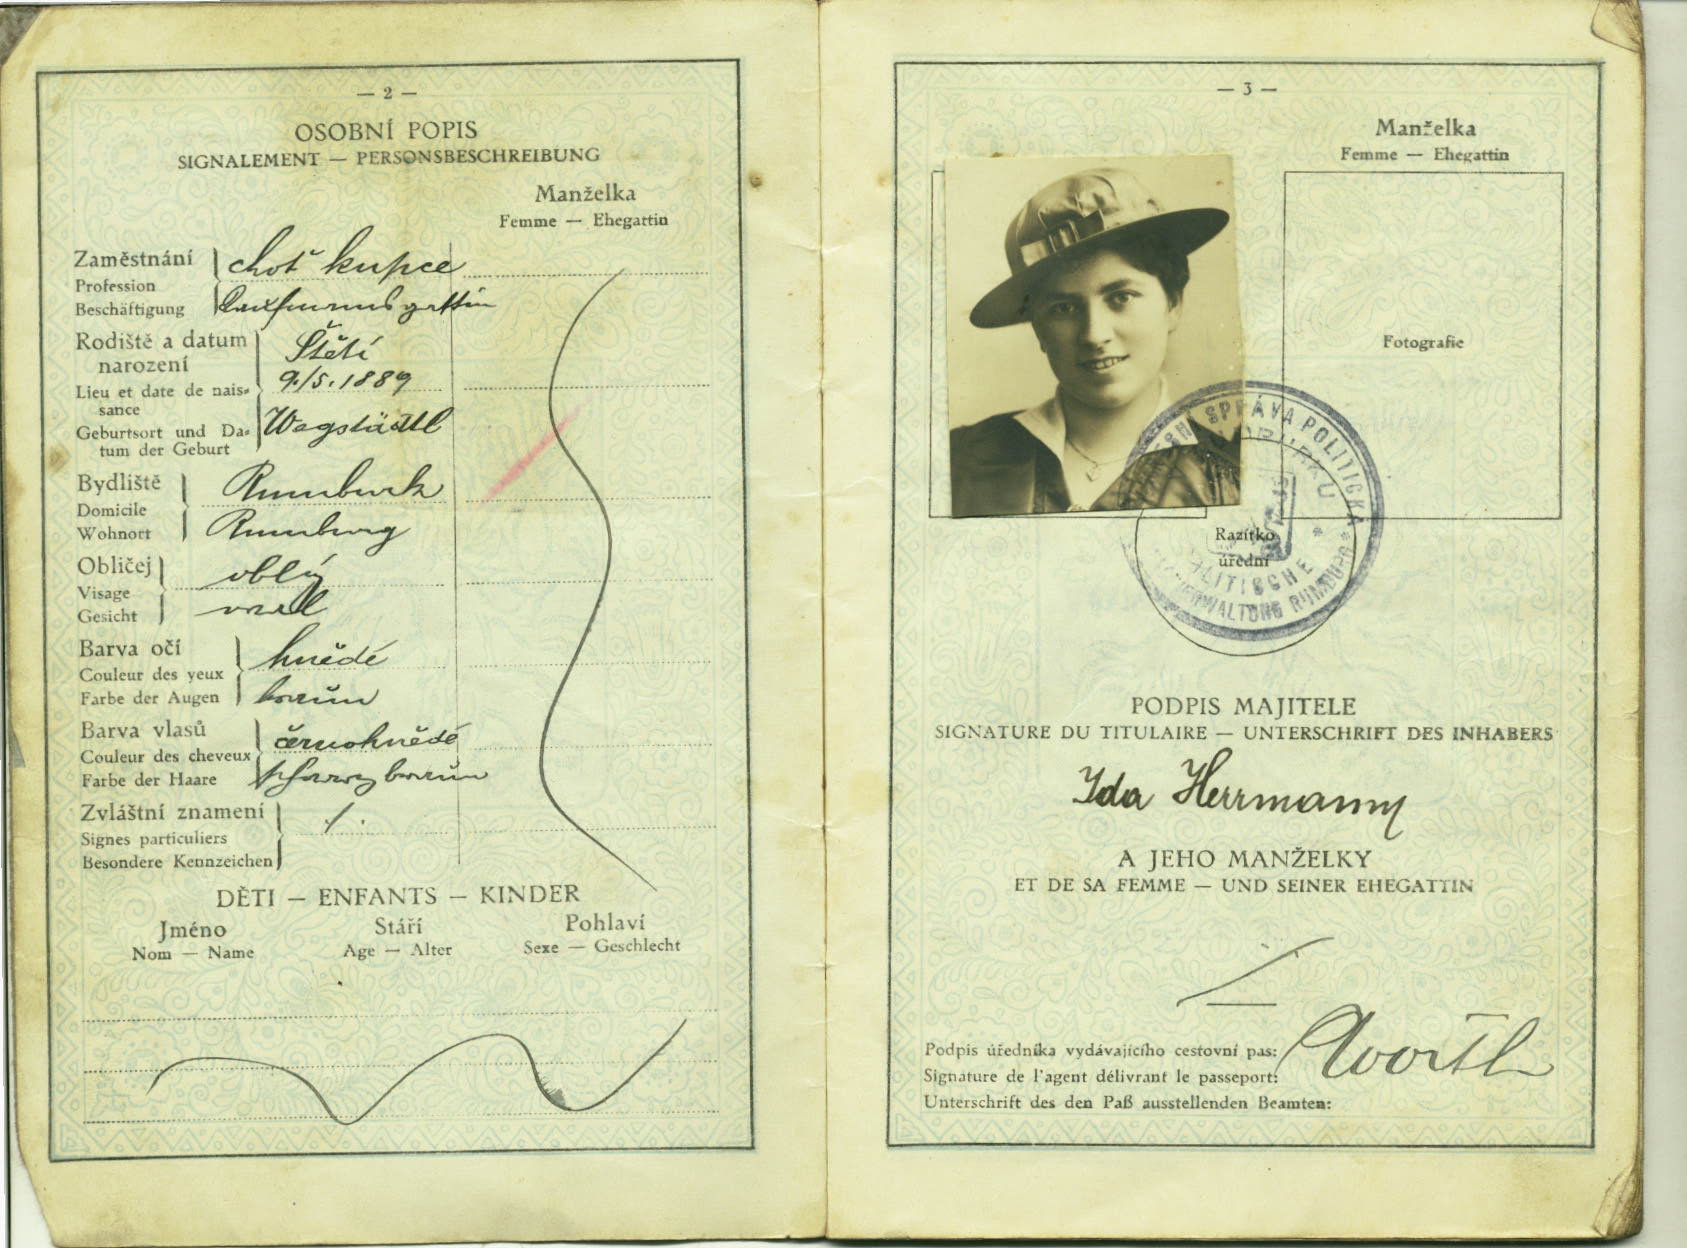 — 2 —
OSOBNÍ POPIS
SIGNALEMENT — PERSONSBESCHREIBUNG
Manželka
Femme — Ehegattin
Zaměstnání
Profession
Beschäftigung
choť kupce
Kaufmannsgattin
Rodiště a datum
narození
Lieu et date de nais-
sance
Geburtsort und Da-
tum der Geburt
Štětí
9./5. 1889
Wegstädtl
Bydliště
Domicile
Wohnort
Rumburk
Rumburg
Obličej
Visage
Gesicht
oblý
oval
Barva očí
Couleur des yeux
Farbe der Augen
hnědé
braun
Barva vlasů
Couleur des cheveux
Farbe der Haare
černohnědé
schwarzbraun
Zvláštní znamení
Signes particuliers
Besondere Kennzeichen
DĚTI — ENFANTS — KINDER
Jméno Stáří Pohlaví
Nom — Name Age — Alter Sexe — Geschlecht
— 3 —
Manželka
Femme — Ehegattin
Fotografie
SPRÁVA POLITICKÁ
POLITISCHE
VERWALTUNG RUMBURG
Razítko
úřední
PODPIS MAJITELE
SIGNATURE DU TITULAIRE — UNTERSCHRIFT DES INHABERS
Ida Herrmann
A JEHO MANŽELKY
ET DE SA FEMME — UND SEINER EHEGATTIN
Podpis úředníka vydávajícího cestovní pas:
Signature de l'agent délivrant le passeport:
Unterschrift des den Paß ausstellenden Beamten: